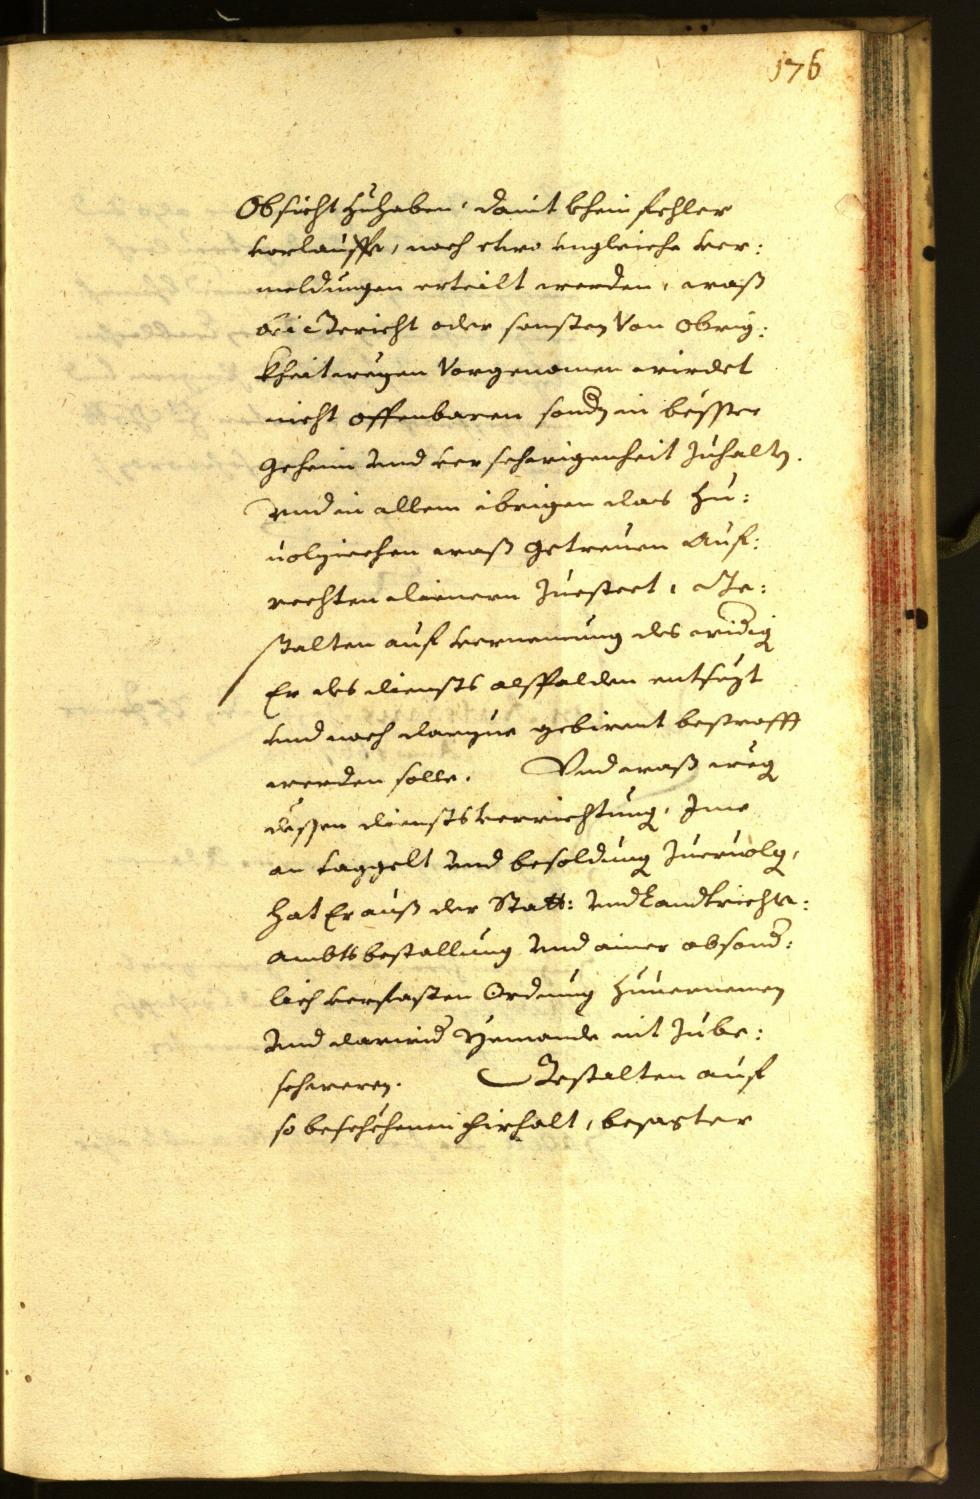 176
Obsicht zu haben, damit khein fehler
verlauffe, noch etwo ungleiche ver:
meldungen erteilt werden, waß
bei Gericht oder sonsten Von Obrig:
kheit wegen Vorgenomen wirdet
nicht offenbaren sondn in bösster
geheim und verschwigenheit zuhaltn.
Und in allem ibrigen das Zu:
uolziechen waß getreuen Auf:
rechten dienern zuesteet, Ge:
stalten auf vernemung des widrig
Er des diensts alspalden entsezt
und noch darzue gebirent bestrafft
werden solle. Und waß weg
dessen diensts verrichtung, Ime
an taggelt und besoldung zueruolg,
hat Er auß der Statt: und Landtrichter:
ambts bestallung und ainer absond:
lich verfasten Ordnung zuuernemen
und darwid Yemande nit zube:
schweren. Gestalten auf
so beschehenen firhalt, besagter